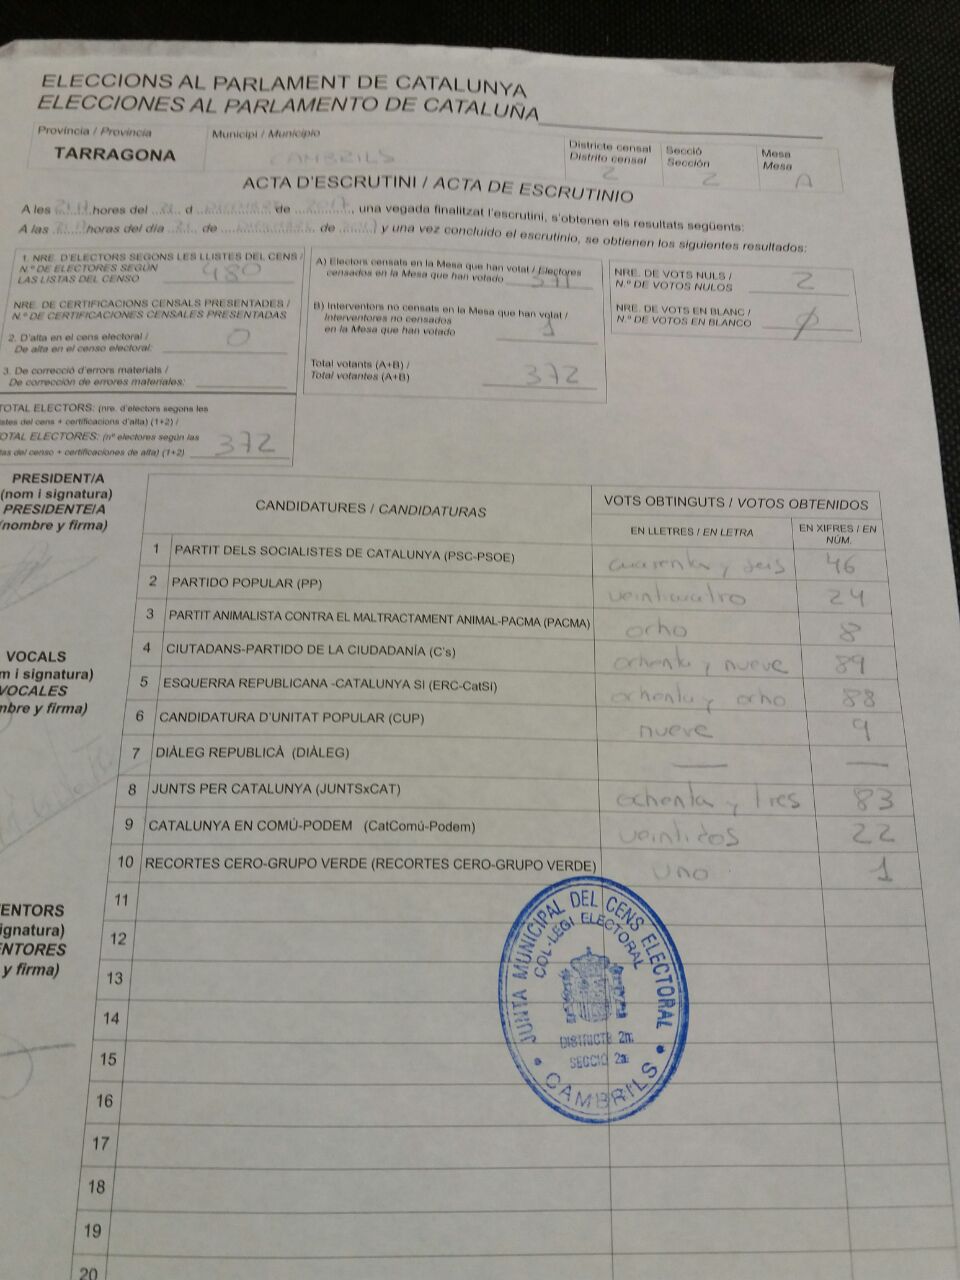 ELECCIONS AL PARLAMENT DE CATALUNYA
ELECCIONES AL PARLAMENTO DE CATALUÑA
Província / Provincia
TARRAGONA
Municipi / Municipio
CAMBRILS
Districte censal
Distrito censal
2
Secció
Sección
2
Mesa
Mesa
A
ACTA D'ESCRUTINI / ACTA DE ESCRUTINIO
A les hores del d de 2017, una vegada finalitzat l'escrutini, s'obtenen els resultats següents:
A las horas del día de de y una vez concluido el escrutinio, se obtienen los siguientes resultados:
1. NRE. D'ELECTORS SEGONS LES LLISTES DEL CENS /
N.º DE ELECTORES SEGÚN
LAS LISTAS DEL CENSO
480
NRE. DE CERTIFICACIONS CENSALS PRESENTADES /
N.º DE CERTIFICACIONES CENSALES PRESENTADAS
2. D'alta en el cens electoral /
De alta en el censo electoral:
0
3. De correcció d'errors materials /
De corrección de errores materiales:
TOTAL ELECTORS: (nre. d'electors segons les
istes del cens + certificacions d'alta) (1+2) /
OTAL ELECTORES: (nº electores según las
tas del censo + certificaciones de alta) (1+2)
372
A) Electors censats en la Mesa que han votat / Electores
censados en la Mesa que han votado
371
B) Interventors no censats en la Mesa que han votat /
Interventores no censados
en la Mesa que han votado
1
Total votants (A+B) /
Total votantes (A+B)
372
NRE. DE VOTS NULS /
N.º DE VOTOS NULOS
2
NRE. DE VOTS EN BLANC /
N.º DE VOTOS EN BLANCO
∅
PRESIDENT/A
(nom i signatura)
PRESIDENTE/A
(nombre y firma)
VOCALS
m i signatura)
VOCALES
mbre y firma)
ENTORS
ignatura)
ENTORES
y firma)
CANDIDATURES / CANDIDATURAS
VOTS OBTINGUTS / VOTOS OBTENIDOS
EN LLETRES / EN LETRA
EN XIFRES / EN
NÚM.
1 PARTIT DELS SOCIALISTES DE CATALUNYA (PSC-PSOE) cuarenta y seis 46
2 PARTIDO POPULAR (PP) veinticuatro 24
3 PARTIT ANIMALISTA CONTRA EL MALTRACTAMENT ANIMAL-PACMA (PACMA) ocho 8
4 CIUTADANS-PARTIDO DE LA CIUDADANÍA (C's) ochenta y nueve 89
5 ESQUERRA REPUBLICANA -CATALUNYA SI (ERC-CatSI) ochenta y ocho 88
6 CANDIDATURA D'UNITAT POPULAR (CUP) nueve 9
7 DIÀLEG REPUBLICÀ (DIÀLEG) — —
8 JUNTS PER CATALUNYA (JUNTSxCAT) ochenta y tres 83
9 CATALUNYA EN COMÚ-PODEM (CatComú-Podem) veintidos 22
10 RECORTES CERO-GRUPO VERDE (RECORTES CERO-GRUPO VERDE) uno 1
11
12
13
14
15
16
17
18
19
20
JUNTA MUNICIPAL DEL CENS ELECTORAL
COL·LEGI ELECTORAL
DISTRICTE 2n
SECCIÓ 2a
CAMBRILS